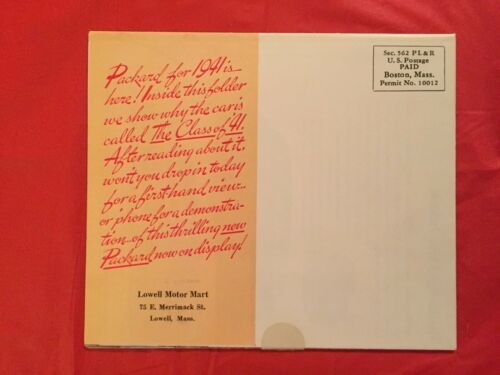 Packard for 1941 is
here! Inside this folder
we show why the car is
called The Class of '41.
After reading about it,
won't you drop in today
for a first-hand view...
or phone for a demonstra-
tion...of this thrilling new
Packard now on display!
Lowell Motor Mart
75 E. Merrimack St.
Lowell, Mass.
Sec. 562 P L & R
U. S. Postage
PAID
Boston, Mass.
Permit No. 10012